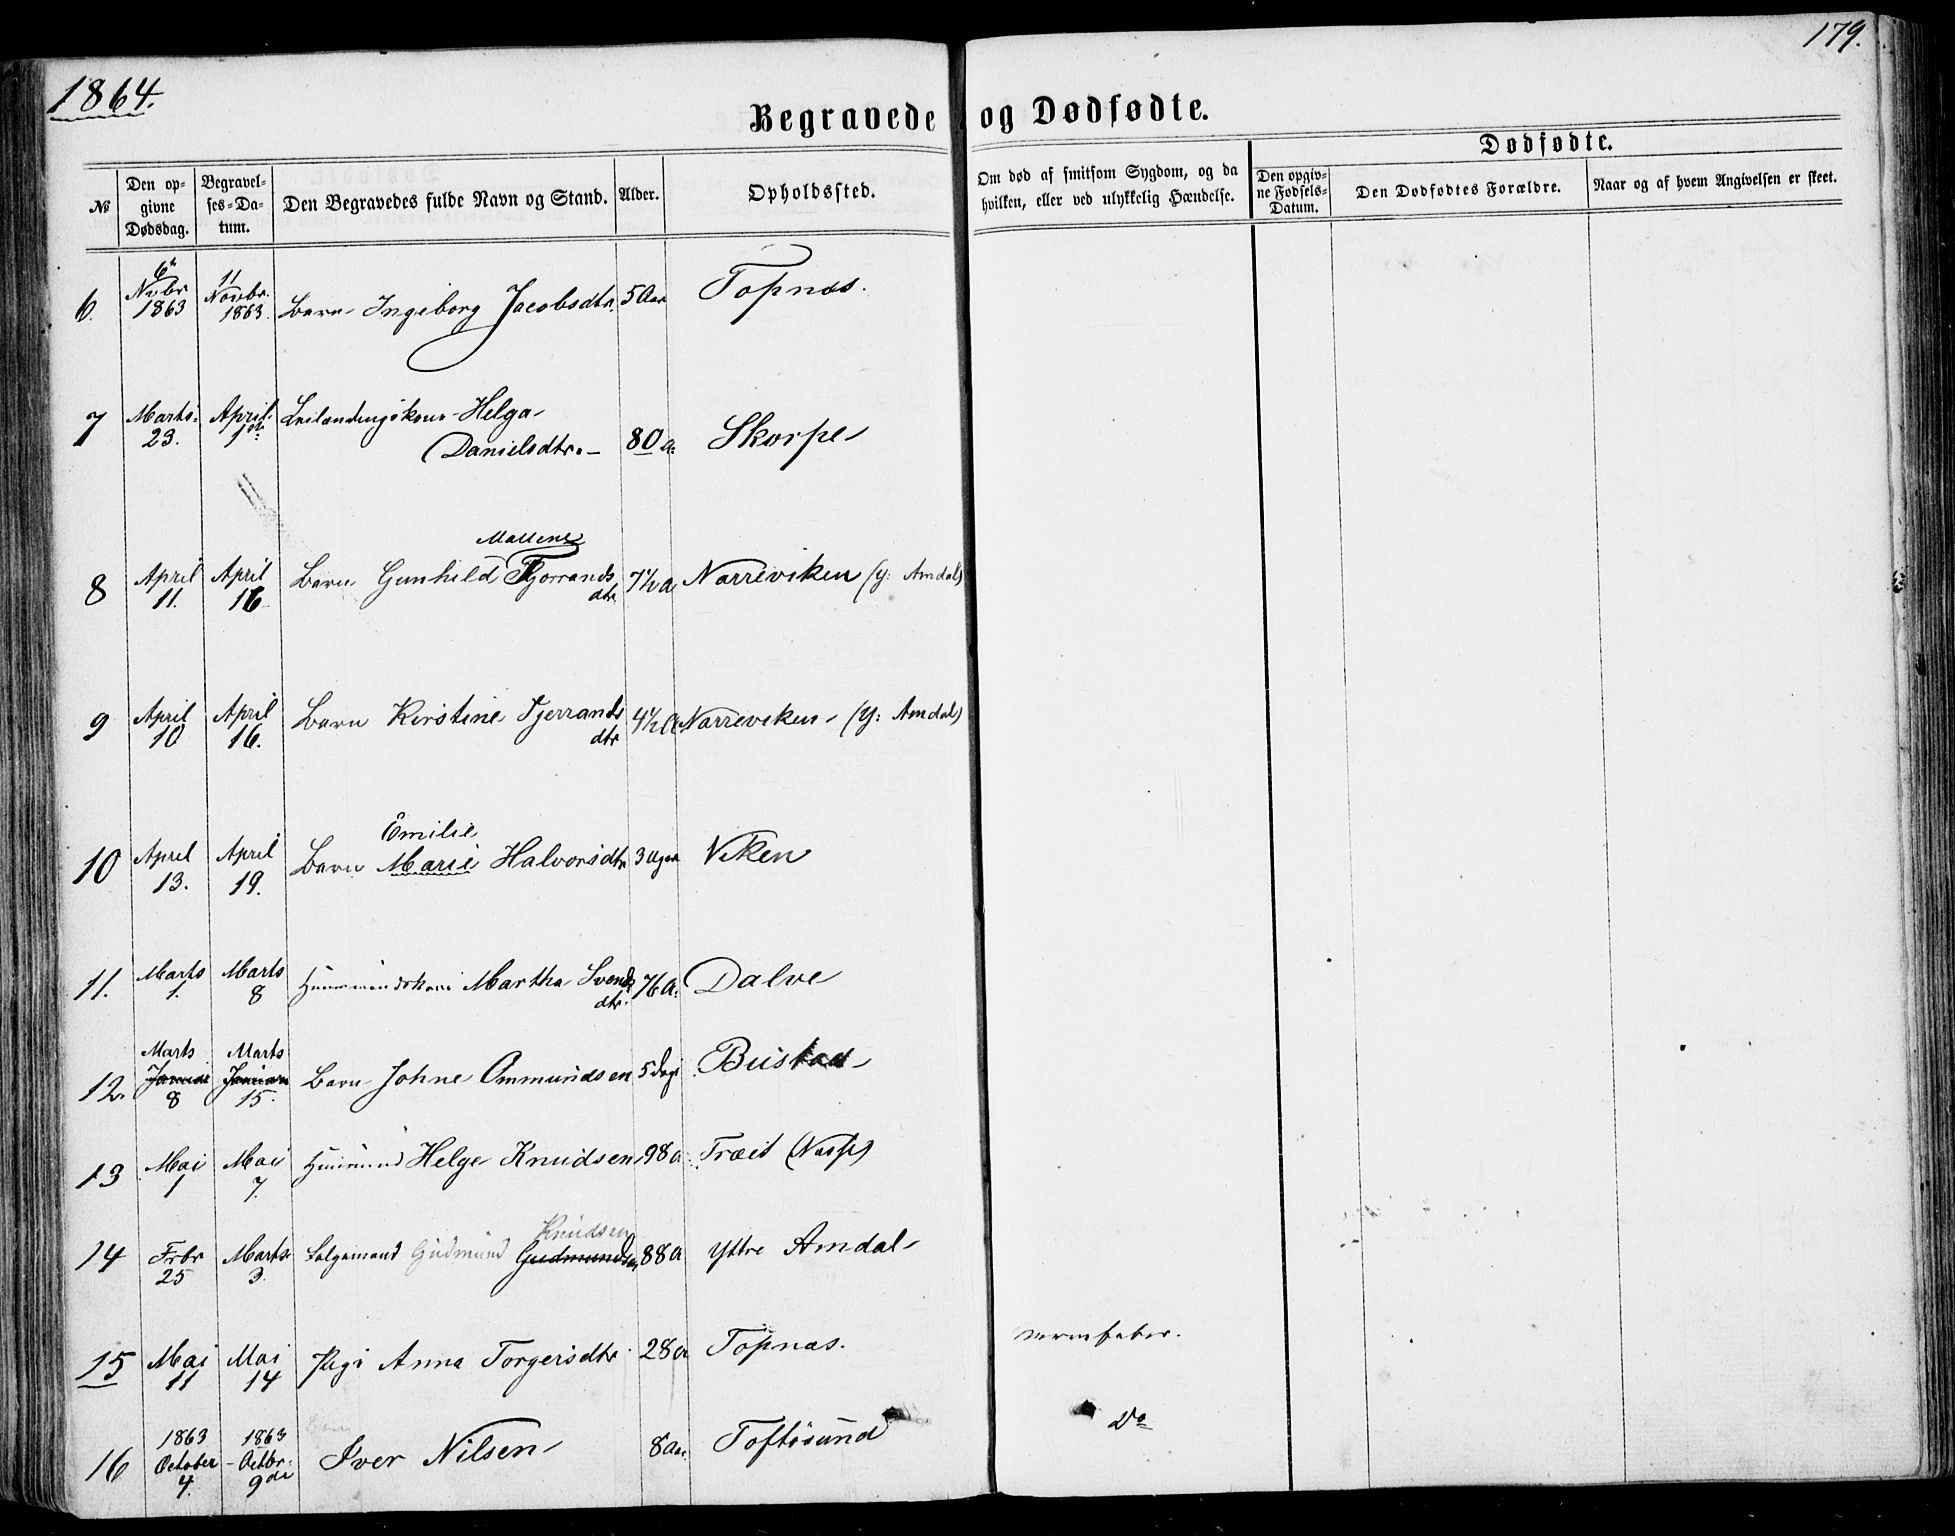 1864.
179.
Begravede og Dødfødte.
Dødfødte.
№
Den op-
givne
Dødsdag.
Begravel-
ses-Da-
tum.
Den Begravedes fulde Navn og Stand.
Alder.
Opholdssted.
Om død af smitsom Sygdom, og da
hvilken, eller ved ulykkelig Hændelse.
Den opgiv-
ne Fødsels-
Datum.
Den Dødfødtes Forældre.
Naar og af hvem Angivelsen er skeet.
6. 6te Nvbr 1863 11 Novbr. 1863. Barn Ingeborg Jacobsdtr. 5 Aar Topnæs.
7 Marts 23. April 1ste Leilændingskone Helga
Danielsdtr. 80 a. Skorpe
Mallene
8 April 11. April 16 Barn Gunhild Tjerrands
dtr 7½ a Narreviken (y: Amdal)
9 April 10 April 16. Barn Kirstine Tjerrands
dtr 4½ a Narreviken (y: Amdal)
Emilie
10 April 13. April 19. Barn Marie Halvorsdtr 3 Uger Viken
11. Marts 1. Marts 8 Huusmandskone Martha Svends
dtr. 76 a. Dalve
12. Marts 8 Marts 15. Barn Johne Ommundsen 5 Dage Bustad
13 Mai 1 Mai 7. Huusmand Helge Knudsen 98 a Træet
Knudsen
14 Febr 25 Marts 3. Gudmund Gudmundsen 88 a Yttre Amdal
15 Mai 11 Mai 14 Pige Anna Torgersdtr 28 a Topnæs. nervefeber.
16 1863 October 4. 1863 Octbr. 9de Barn Iver Nilsen 8 aar. Toftøsund Do